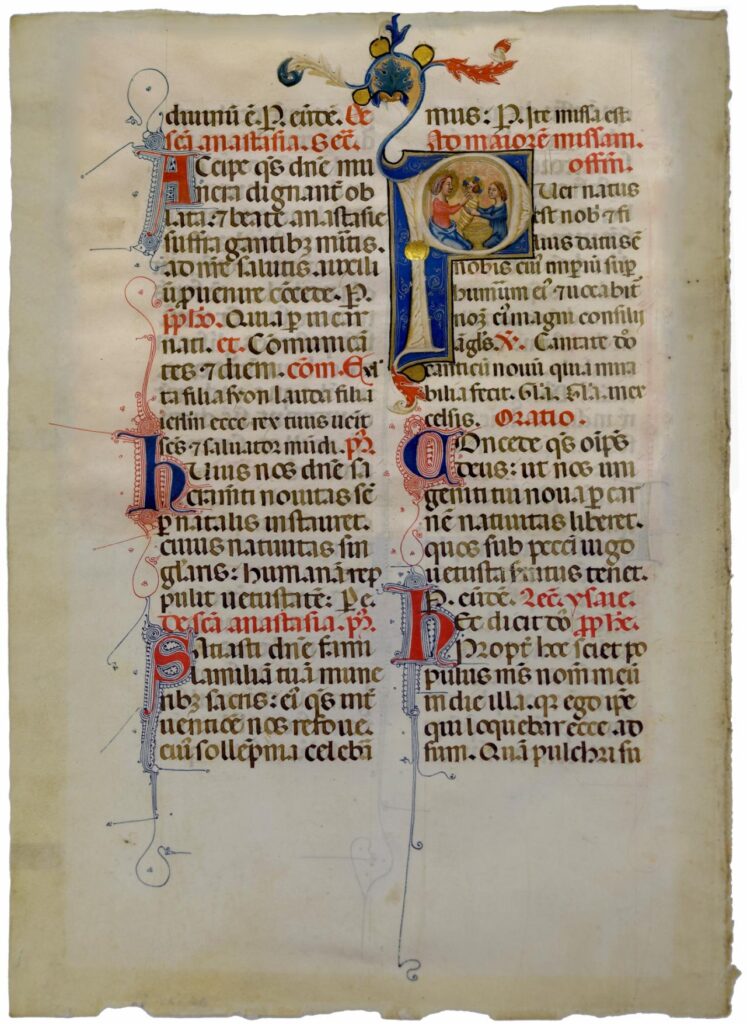 diuinū ē. P. eūdē. De
scā anastasia. Sec̄.
Accipe q̄s dn̄e mu
nera dignant̄ ob
lata. ⁊ beate anastasie
suffragantibꝫ m̄itis.
ad nr̄e salutis auxili
ū ꝓuenire c̄cede. P.
Quia p̱ incar
nati. et. Comunicā
tes ⁊ diem. com̄. Ex̄l
ta filia syon lauda filia
ierl̄m ecce rex tuus ueīt
sc̄s ⁊ saluator mūdi. p̄r.
Huius nos dn̄e sa
cram̄ti nouitas sē
p̱ natalis instauret.
cuius natiuitas sin
gl̄aris: humanā rep
pulit uetustatē: P. e.
De scā anastasia. p̄r.
Satiasti dn̄e fami
liam tuā mune
ribꝫ sacris: eī q̄s int̄
uentiōe nos refoue.
cuī sollēpnia celebrā
mus: P. Ite missa est
Ad maiorē missam.
offm̄.
Puer natus
est nob̄ ⁊ fi
lius datus ē
nobis cuī imperiū sup̱
humerum eī ⁊ uocabit̄
nom̄ eī magni consilij
angl̄s. V. Cantate dn̄o
canticū nouū quia mira
bilia fecit. Gl̄a. Gl̄a. in ex
celsis. Oratio.
Concede q̄s oīps̄
deus: ut nos uni
geniti tui noua p̱ car
nē natiuitas liberet.
quos sub pecc̄i iugo
uetusta s̄uitus tenet.
P. eūdē. Lec̄. ysaie.
Hec dicit dn̄s ꝓph̄e.
Propt̄ hoc sciet po
pulus m̄s nom̄ meū
in die illa. qr̄ ego ip̄e
qui loquebar ecce ad
sum. Quā pulchri su